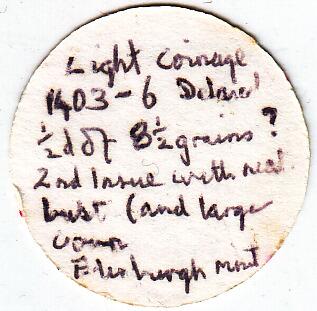 Light coinage
1403-6 Debased
½d of 8½ grains?
2nd Issue with neat
bust (and large
crown
Edinburgh mint